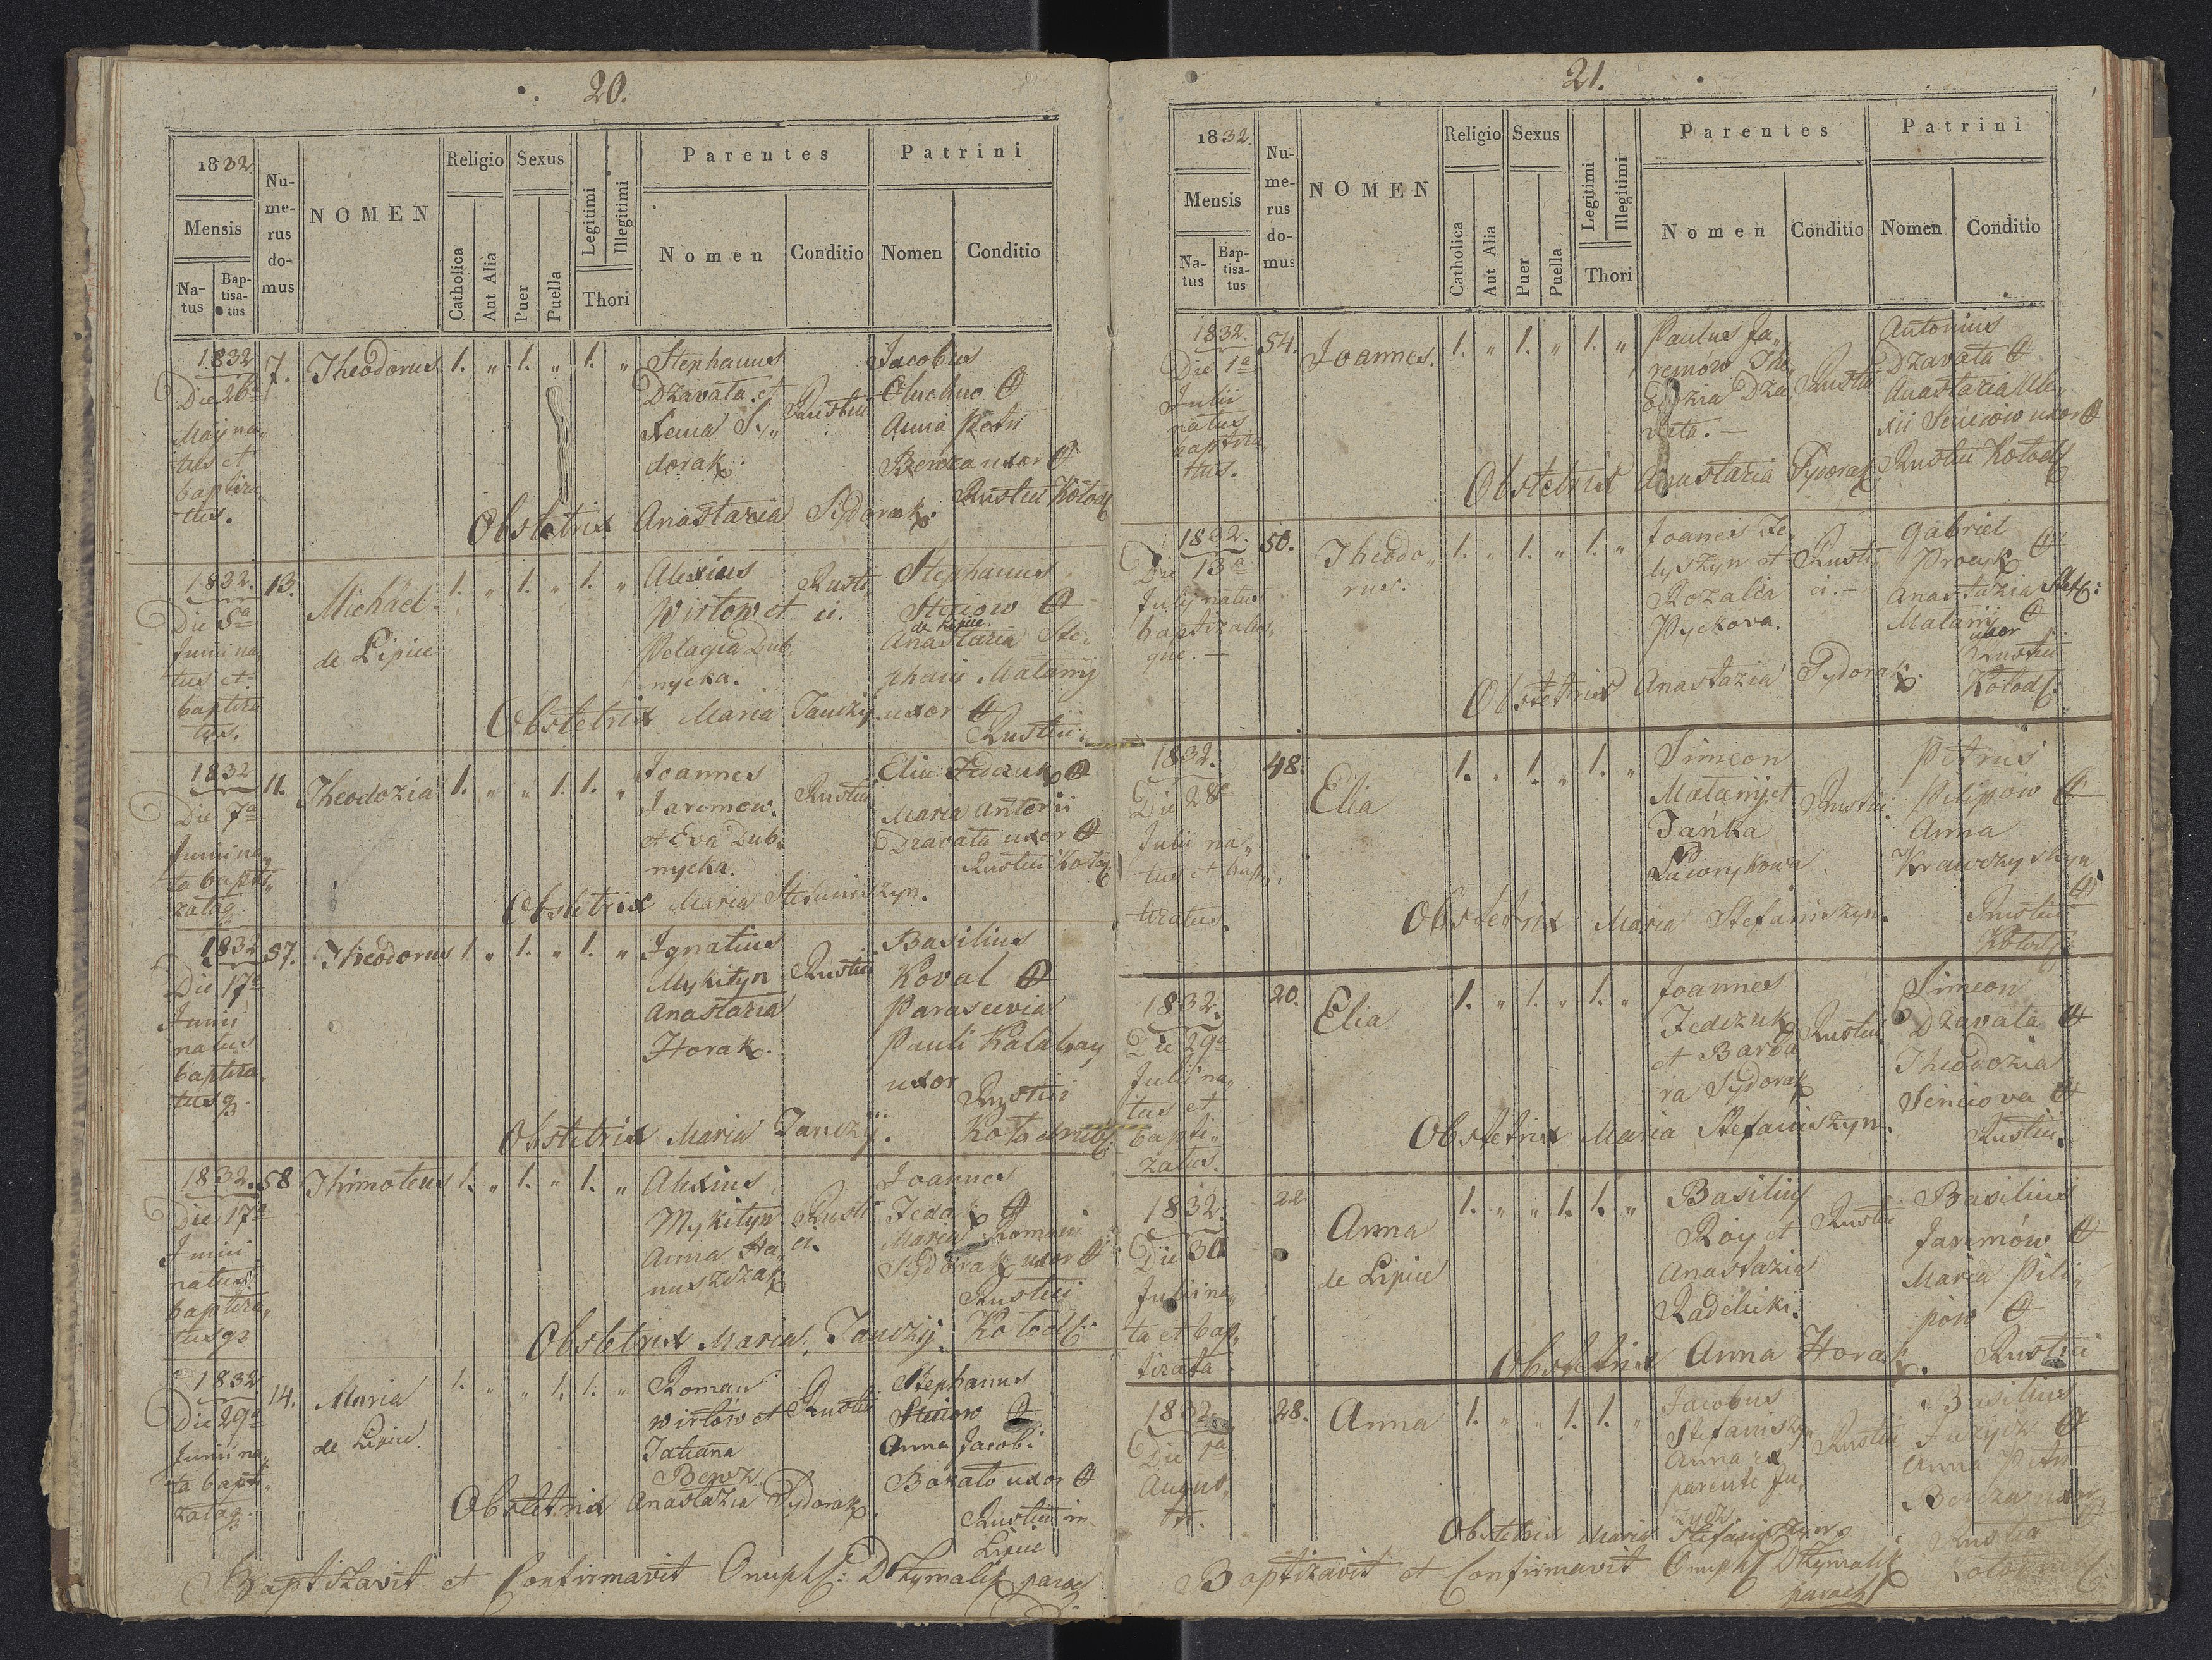 20.
1832.
Mensis
Na-
tus
Bap-
tisa-
tus
Nu-
me-
rus
do-
mus
NOMEN
Religio
Catholica
Aut Alia
Sexus
Puer
Puella
Legitimi
Illegitimi
Thori
Parentes
Nomen
Conditio
Patrini
Nomen
Conditio
1832
Die 26a
Maj na„
tus et
baptiza„
tus.
7.
Theodorus
1. „ 1. „ 1. „
Stephanus
Dzavata et
Sy„
dorak.
Rustici
Jacobus
Anna Petri
Bewza uxor
Rustici Kołod
Obstetrix Anastazia Sydorak.
1832.
Die 5a
Junii na„
tus et
baptiza
tus.
13.
Michael
de Lipice
1. „ 1. „ 1. „
Alexius
Wirtow et
Pelagia Dub„
nycka.
Rusti„
ci.
Stephanus
Steciow
de Lipice.
Anastazia Ste„
phani Matamy
uxor
Rustici.
Obstetrix Maria Janczy.
1832
Die 7a
Junii na„
ta bapti„
zataq.
11.
Theodozia
1. „ „ 1. 1. „
Joannes
Jaremow.
et Eva Dub„
nycka.
Rustici
Elia Fedczuk
Maria Antonii
Dzavata uxor
Rustici Kołod
Obstetrix Maria Stefaniszyn.
1832
Die 17a
Junii
natus
baptiza„
tusq.
57.
Theodorus
1 „ 1. „ 1. „
Ignatius
Mykityn
Anastazia
Horak.
Rustici
Basilius
Koval
Parascevia
Pauli Kalabay
uxor
Rustici
Obstetrix Maria Janczy.
1832.
Die 17a
Junii
natus
baptiza„
tusq
58
Thimoteus
1. „ 1. „ 1. „
Alexius
Mykityn
Anna Ha„
nuszczak
Rusti
ci.
Joannes
Fedak
Maria Romani
Sydorak uxor
Rustici
Kołod
Obstetrix Maria Janczy.
1832
Die 29a
Junii na„
ta bapti„
zataq.
14.
Maria
de Lipice.
1. „ „ 1. 1. „
Roman
Wirtów et
Tatianna
Bewz
Rustici
Stephanus
Steciow
Anna Jacobi
uxor
Rustici in
Lipice
Obstetrix Anastazia Sydorak.
Baptizavit et Confirmavit Onuph: Dzymalik paroch
21.
1832.
Mensis
Na-
tus
Bap-
tisa-
tus
Nu-
me-
rus
do-
mus
NOMEN
Religio
Catholica
Aut Alia
Sexus
Puer
Puella
Legitimi
Illegitimi
Thori
Parentes
Nomen
Conditio
Patrini
Nomen
Conditio
1832.
Die 1a
Julii
natus
baptiza
tus.
54.
Joannes.
1. „ 1. „ 1. „
Paulus Ja„
remów The„
Dza„
vata.—
Rustici
Antonius
Dzavata
Anastazia Ale„
xii Seńciów uxor
Rustici Kołod
Obstetrix Anastazia Sydorak.
1832.
Die 13a
Julij natus
baptizatus„
que.—
50.
Theodo„
rus.
1. „ 1. „ 1. „
Joannes Fe„
dyszyn et
Rozalia
Pyckova.
Rusti„
ci.—
Gabriel
Procyk
Anastazia Stef:
Matamij
uxor
Rustici
Kołod:
Obstetrix Anastazia Sydorak.
1832.
Die 28a
Julii na„
tus et bap„
tizatus.
48.
Elia
1. „ 1. „ 1. „
Simeon
Matamij et
Jańka
Rustici.
Petrus
Pilipow
Anna
Krawczyszyn
Rustici
Kołod
Obstetrix Maria Stefaniszyn.
1832.
Die 29a
Julii na„
tus et
bapti„
zatus.
20.
Elia
1. „ 1. „ 1. „
Joannes
Fedczuk
et Barba„
ra Sydorak
Rustici.
Simeon
Dzavata
Theodozia
Seńciova
Rustici.
Obstetrix Maria Stefaniszyn.
1832.
Die 30
Julii na„
ta et bap„
tizata
22
Anna
de Lipice
1. „ „ 1. 1. „
Basilius
Roy et
Anastazia
Radelicki.
Rustici
Basilius
Jaremów
Maria Pili„
pów
Rustici
Obstetrix Anna Horak.
1832.
Die 1a
Augus„
ti.
28.
Anna
1. „ „ 1. 1. „
Jacobus
Stefaniszyn
Anna ex
parente Ju„
zycz.
Rustici
Basilius
Juzycz
Anna Petri
Bewza uxor
Obstetrix Maria Stefaniszyn
Baptizavit et Confirmavit Onuph Dzymalik
paroch